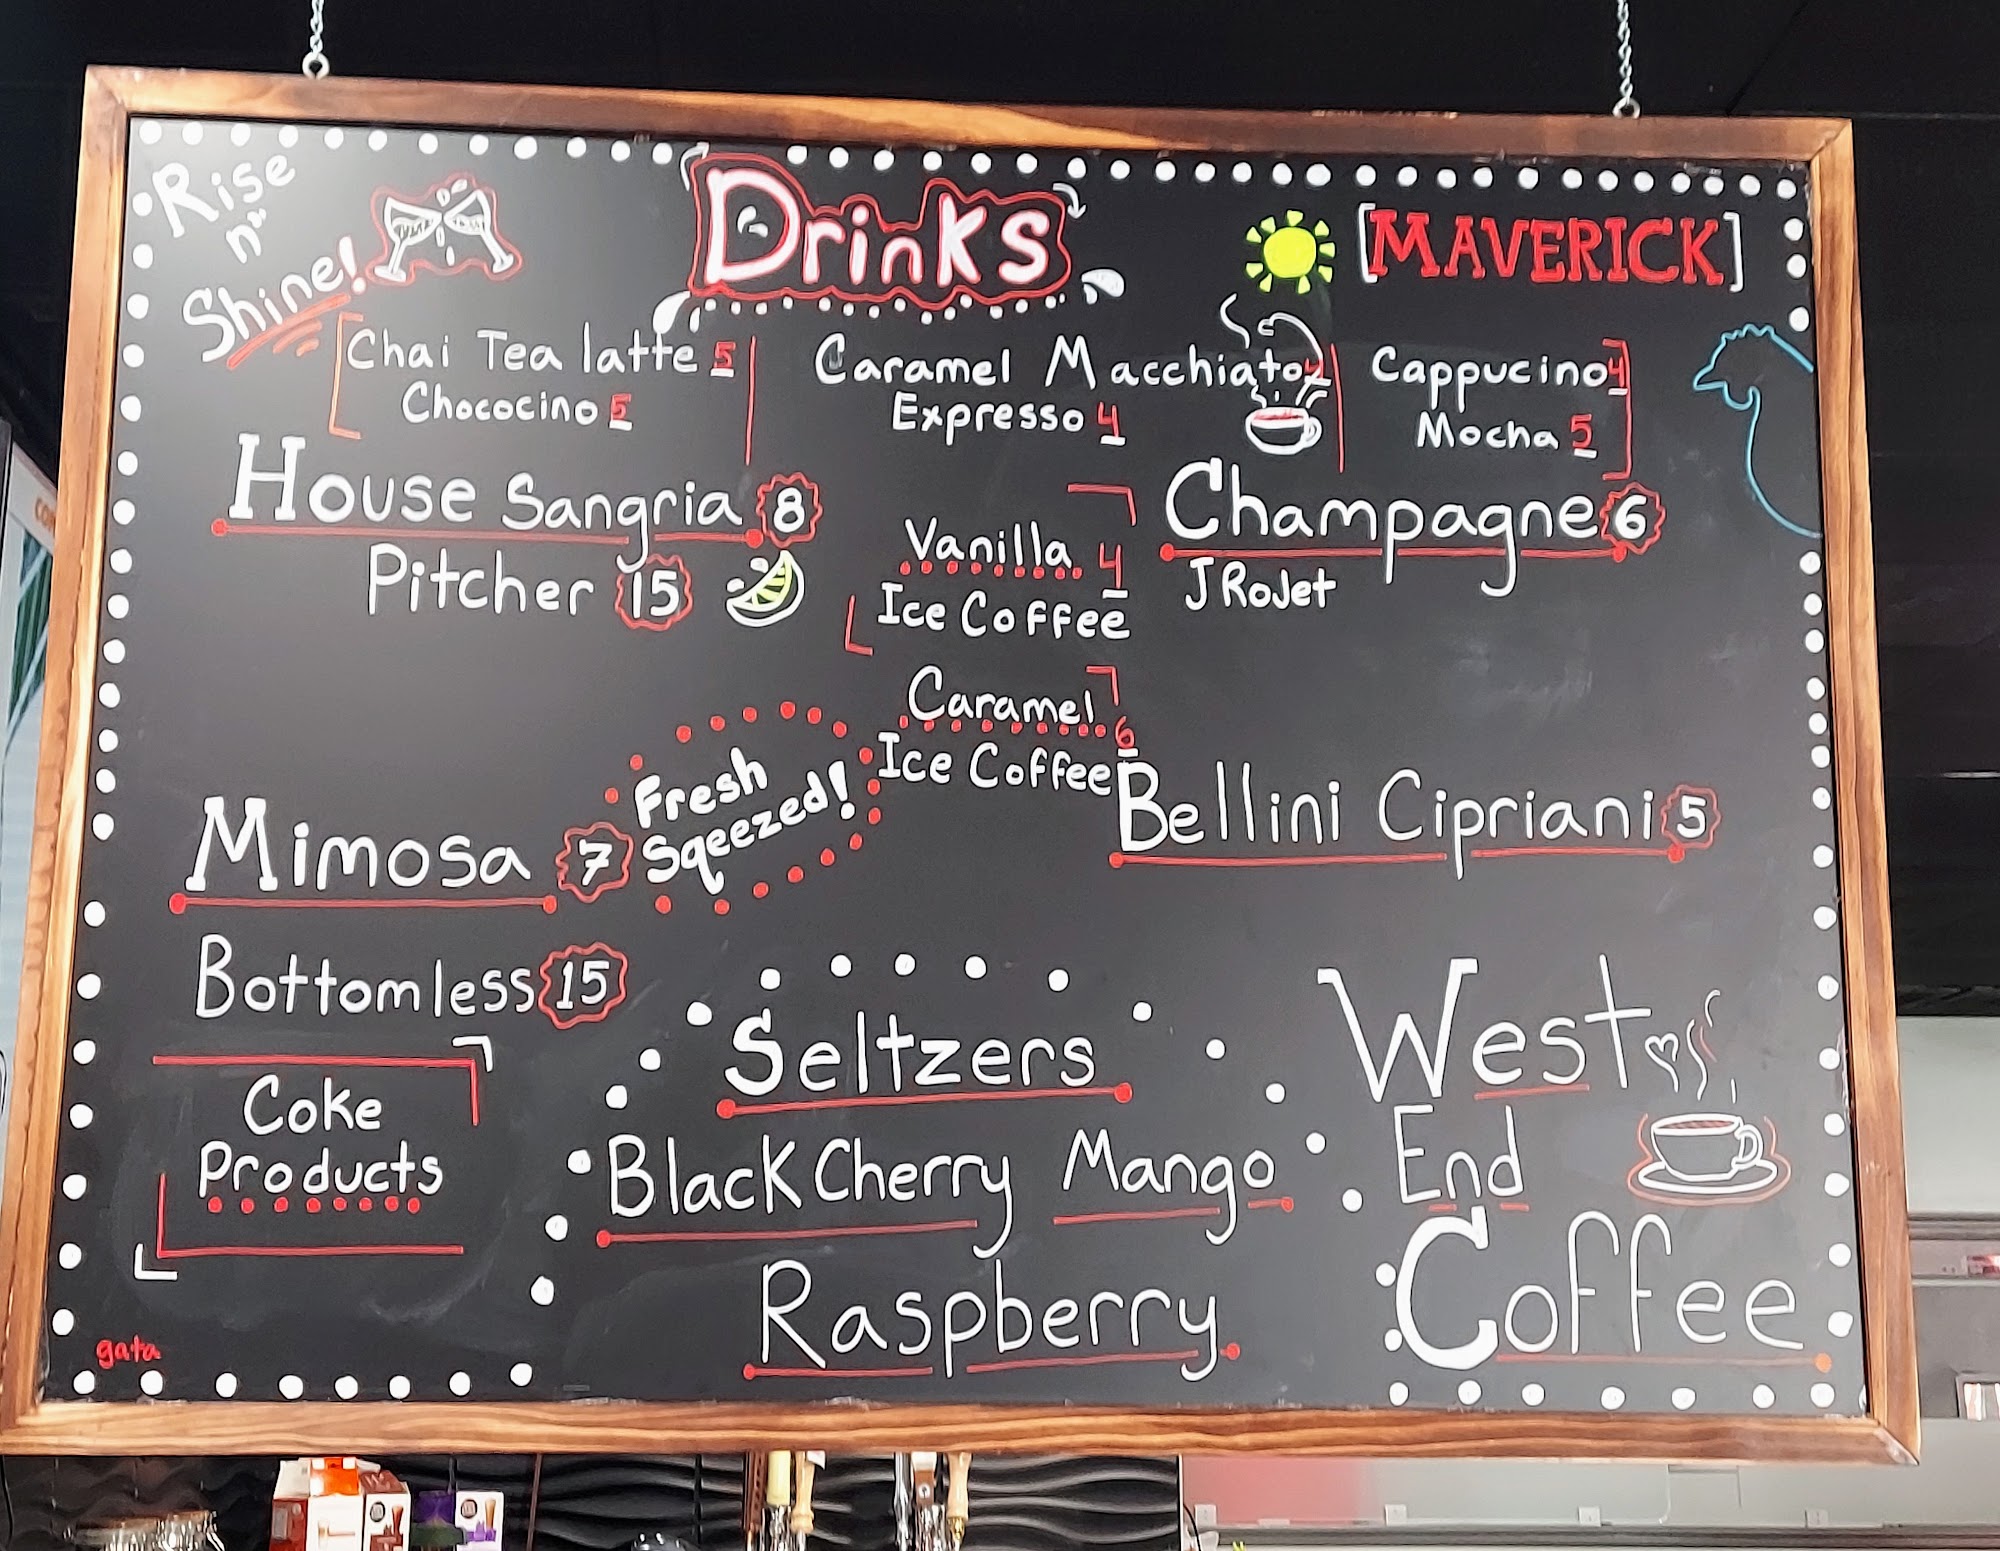 Rise
n'
Shine!
Drinks
[MAVERICK]
Chai Tea latte 5
Chococino 5
Caramel Macchiato 4
Expresso 4
Cappucino 4
Mocha 5
House Sangria 8
Pitcher 15
Vanilla 4
Ice Coffee
Champagne 6
J RoJet
Caramel 6
Ice Coffee
Mimosa 7
Fresh
Sqeezed!
Bellini Cipriani 5
Bottomless 15
Coke
Products
Seltzers
Black Cherry Mango
Raspberry
West
End
Coffee
gata